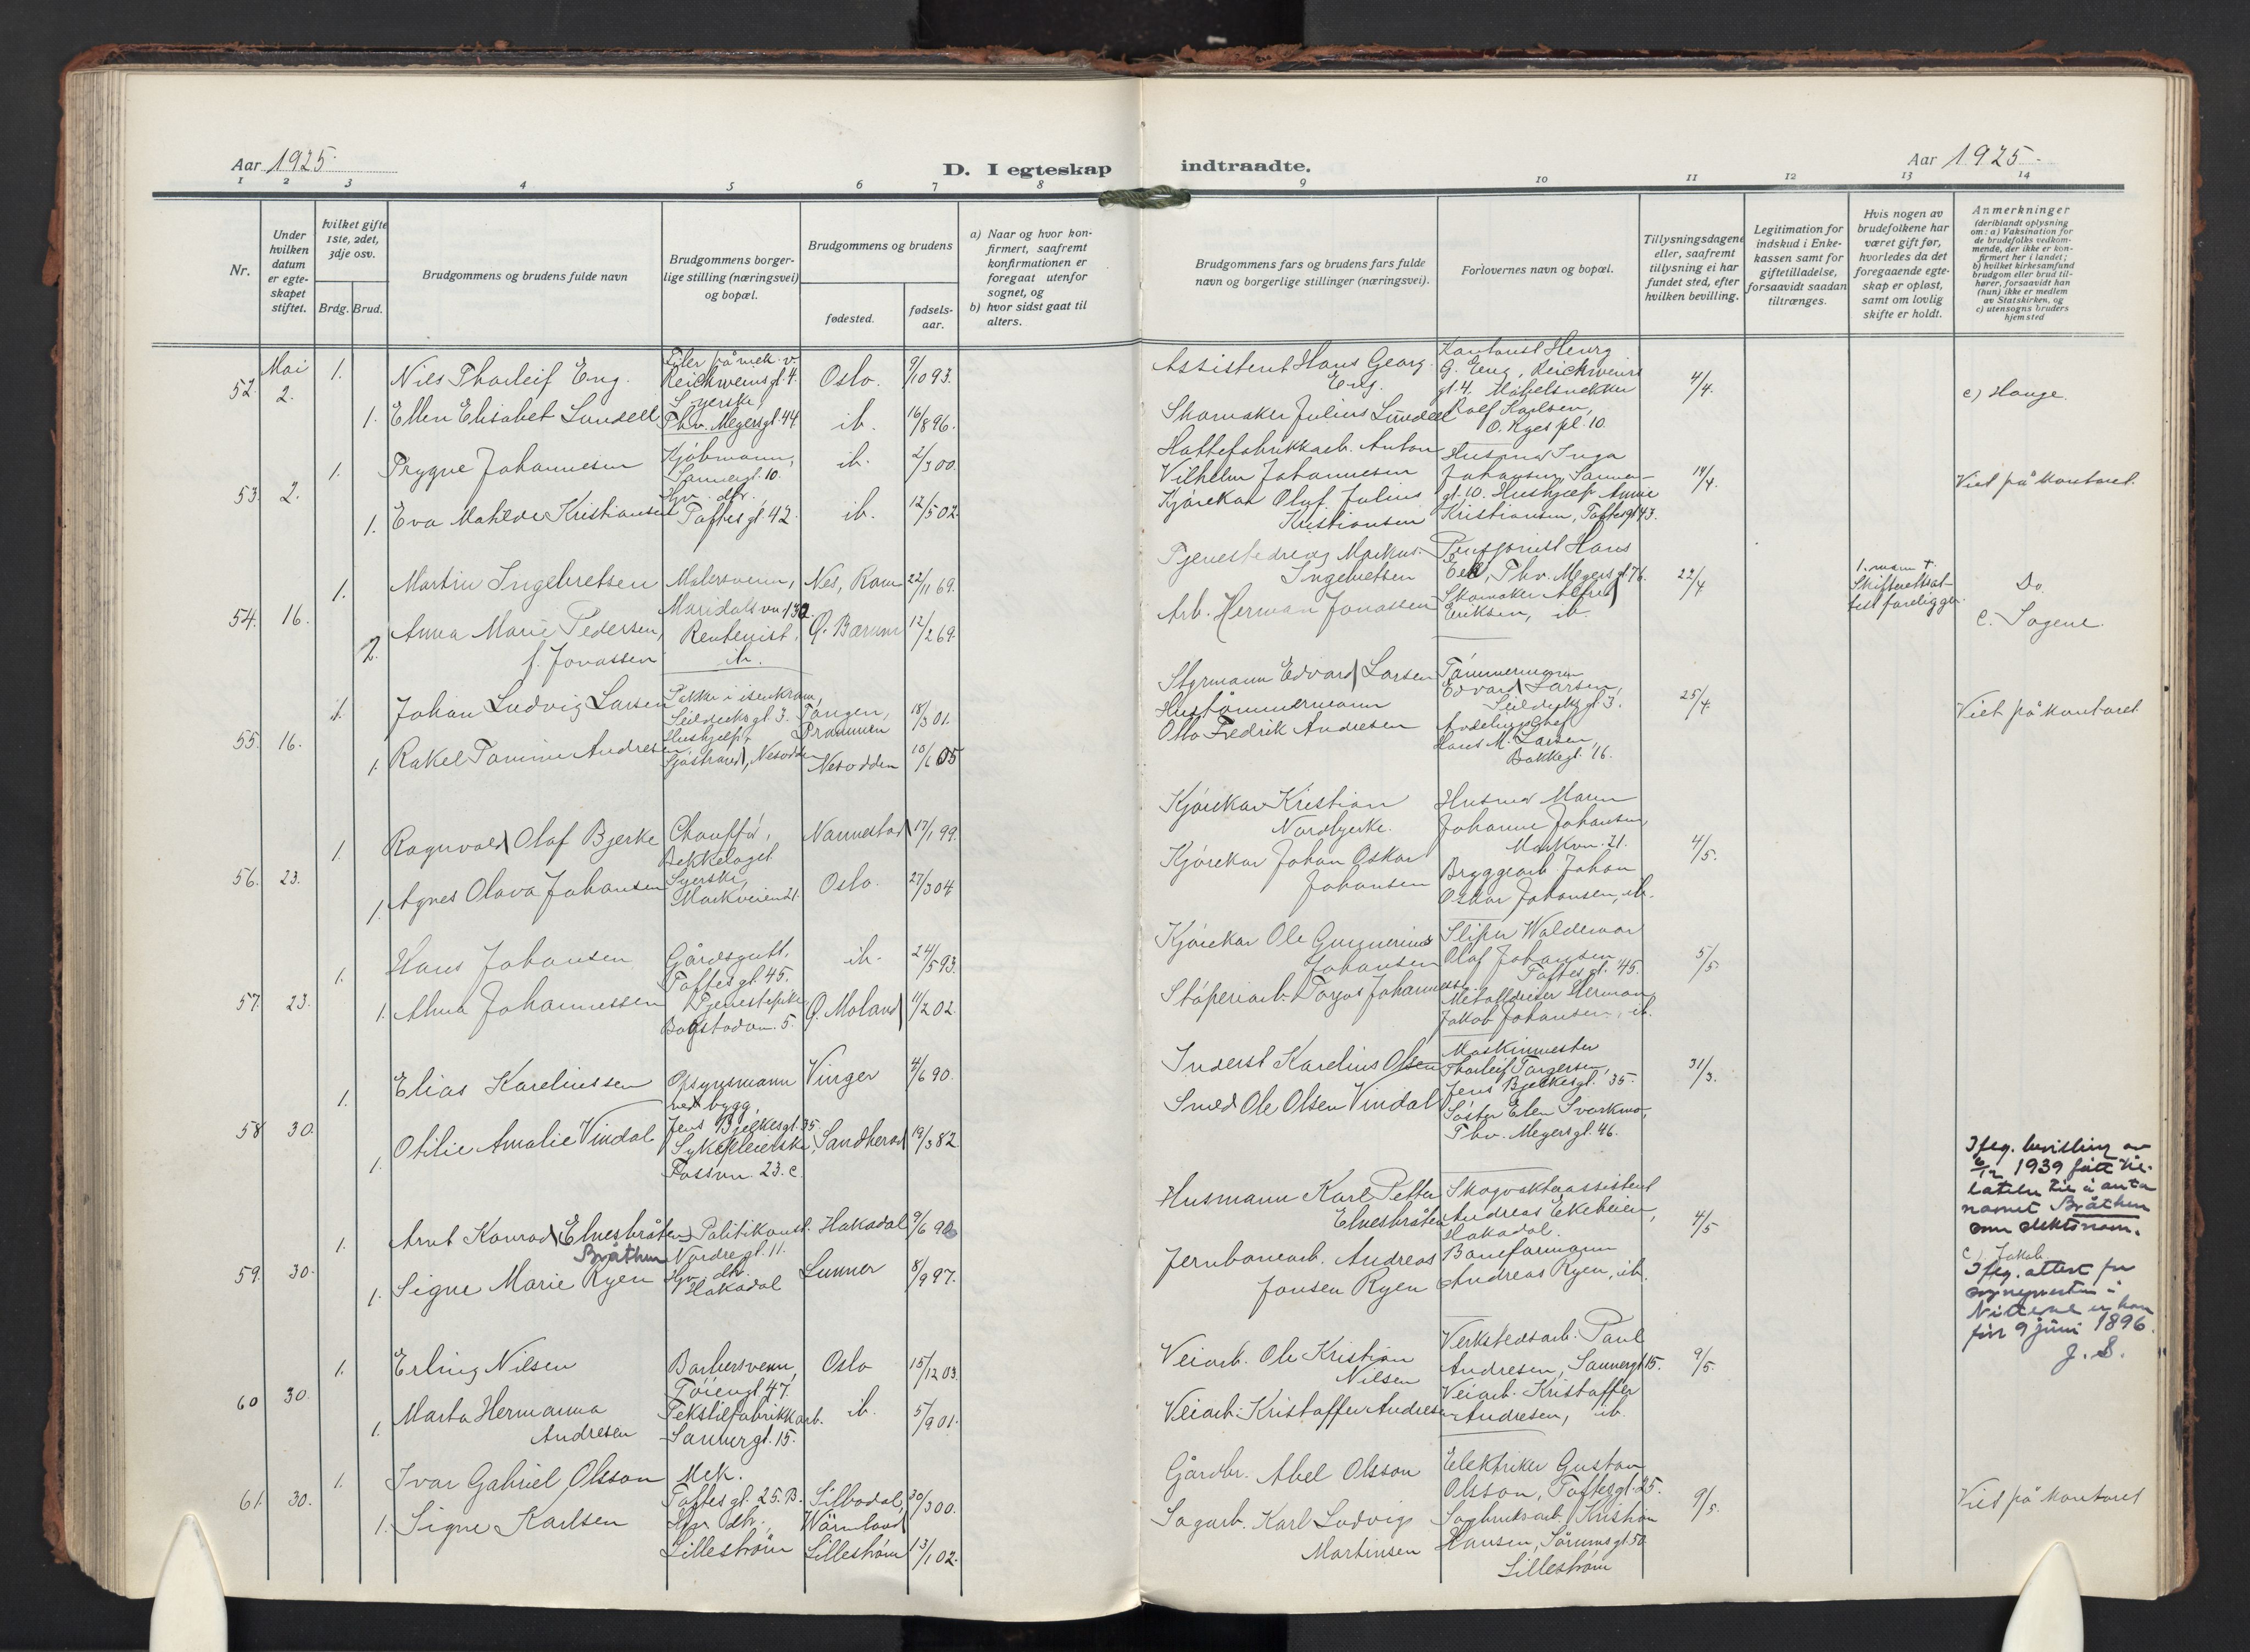 Aar 1925.
D. I egteskap indtraadte.
Aar 1925.
1 2 3 4 5 6 7 8 9 10 11 12 13 14
Nr.
Under hvilken datum er egte-skapet stiftet.
hvilket gifte 1ste, 2det, 3dje osv.
Brdg. Brud.
Brudgommens og brudens fulde navn
Brudgommens borger-lige stilling (næringsvei) og bopæl.
Brudgommens og brudens
fødested.
fødsels-aar.
a) Naar og hvor kon-firmert, saafremt konfirmationen er foregaat utenfor sognet, og
b) hvor sidst gaat til alters.
Brudgommens fars og brudens fars fulde navn og borgerlige stillinger (næringsvei).
Forlovernes navn og bopæl.
Tillysningsdagene eller, saafremt tillysning ei har fundet sted, efter hvilken bevilling.
Legitimation for indskud i Enke-kassen samt for giftetilladelse, forsaavidt saadan tiltrænges.
Hvis nogen av brudefolkene har været gift før, hvorledes da det foregaaende egte-skap er opløst, samt om lovlig skifte er holdt.
Anmerkninger
(deriblandt oplysning om: a) Vaksination for de brudefolks vedkom-mende, der ikke er kon-firmert her i landet; b) hvilket kirkesamfund brudgom eller brud til-hører, forsaavidt han (hun) ikke er medlem av Statskirken, og c) utensogns bruders hjemsted
Mai
52. 2.
1. Nils Tharleif Eng.
Filer på mek. v.
Reichweinsgt. 4.
Oslo. 9/10 93.
Assistent Hans Georg
Eng.
Kontorist Henrg
G. Eng, Reichweins
gt. 4. Møbelsnekker
4/4.
c) Hauge.
1. Ellen Elisabet Lundell
Syerske,
Thv. Meyersgt. 44
ib. 16/8 96.
Skomaker Julius Lundell
Rolf Karlsen,
O. Ryes pl. 10.
53. 2.
1. Trygve Johannesen
Kjøbmann,
Sannergt. 10.
ib. 2/3 00.
Hattefabrikkarb. Anton
Vilhelm Johannesen
Husmor Inga
Johansen, Sanner-
gt. 10. Hushjelp Annie
14/4.
Viet på kontoret.
1. Eva Matilde Kristiansen
Hjv. dtr.
Toftesgt. 42.
ib. 12/5 02.
Kjørekar Oluf Julius
Kristiansen
Kristiansen, Toftesgt 43.
54. 16.
1. Martin Ingebretsen
Malersvenn,
Maridalsvn. 130
Nes, Rom. 22/11 69.
Tjenestedreng Markus
Ingebretsen
Pensjonist Hans
Eek, Thv. Meyersgt 76.
22/4
1. mann †.
Skifterettsat-
test foreligger.
Do.
c. Sagene.
2. Anna Marie Pedersen,
f. Jonassen
Rentenist,
ib.
Ø. Bærum 12/2 69.
Arb. Herman Jonassen
Skomaker Alfred
Eriksen, ib.
55. 16.
1. Johan Ludvig Larsen
Pakker i isenkram,
Seilduksgt. 3.
Tangen,
Drammen
18/3 01.
Styrmann Edvard Larsen
Tømmermann
Edvard Larsen,
Seilduksgt 3.
25/4
Viet på kontoret
1. Rakel Tomine Andresen
Hushjelp,
Sjøstrand, Nesodden
Nesodden 10/6 05
Hustømmermann
Otto Fredrik Andresen
Avdelingschef
Hans M. Larsen,
Bakkegt. 16.
56. 23.
1. Ragnvald Olaf Bjerke
Chauffør,
Bekkelaget
Nannestad 17/1 99.
Kjørekar Kristian
Nordbyerke.
Husmor Maren
Johanne Johansen
Markvn. 21.
4/5.
1. Agnes Olava Johansen
Syerske,
Markveien 21.
Oslo. 27/3 04
Kjørekar Johan Oskar
Johansen
Bryggearb. Johan
Oskar Johansen, ib.
57. 23.
1. Hans Johansen
Gårdsgutt,
Toftesgt. 45.
ib. 24/5 93.
Kjørekar Ole Gunnerius
Johansen
Sliper Waldemar
Olaf Johansen
Toftesgt. 45.
5/5
1. Alma Johannessen
Tjenestepike
Bogstadvn. 5.
Ø. Moland 11/2 02.
Støperiarb. Torjus Johannessen
Metalldreier Herman
Jakob Johansen, ib.
58 30.
1. Elias Kareliussen
Opsynsmann
ved bygg,
Jens Bjelkesgt. 35.
Vinger 4/6 90.
Inderst Karelius Olsen
Maskinmester
Thorleif Torgersen,
Jens Bjelkesgt. 35.
31/3.
1. Otilie Amalie Vindal
Sykepleierske,
Fossvn. 23. c
Sandherad 19/3 82
Smed Ole Olsen Vindal
Søster Elen Svorkmo,
Thv. Meyersgt. 46.
59. 30.
1. Arnt Konrad Elnesbråten
Bråthen
Politikonst.
Nordregt. 11.
Hakadal 9/6 96
Husmann Karl Petter
Elnesbråten
Skogvokterassistent
Andreas Ekeheien,
Hakadal.
4/5
Iføg. bevilling av
6/12 1939 fått til-
latelse til å anta
navnet Bråthen
som slektsnavn.
c) Jakob.
Iføg. attest fra
sognepresten i
Nittedal er han
født 9 juni 1896.
J. S.
1. Signe Marie Ryen
Hjv. dtr.
Hakadal
Lunner 8/9 97.
Jernbanearb. Andreas
Jonsen Ryen
Baneformann
Andreas Ryen, ib.
60 30.
1. Erling Nilsen
Barbersvenn,
Tøiengt. 47.
Oslo 15/12 03.
Veiarb. Ole Kristian
Nilsen
Verkstedsarb. Paul
Andresen, Sannergt 15.
9/5.
1. Marta Hermanna
Andresen
Tekstilfabrikkarb.
Sannergt. 15.
ib. 5/9 01.
Veiarb. Kristoffer Andresen
Veiarb. Kristoffer
Andresen, ib.
61. 30.
1. Ivar Gabriel Olsson
Mek.
Toftesgt. 25. B.
Silbodal,
Wärmland
30/3 00.
Gårdbr. Abel Olsson
Elektriker Gustav
Olsson, Toftesgt. 25.
9/5.
Viet på kontoret
1. Signe Karlsen
Hjv. dtr.,
Lillestrøm
Lillestrøm 13/1 02.
Sagarb. Karl Ludvig
Martinsen
Sagbruksarb. Kristian
Hansen, Sørumsgt. 50
Lillestrøm